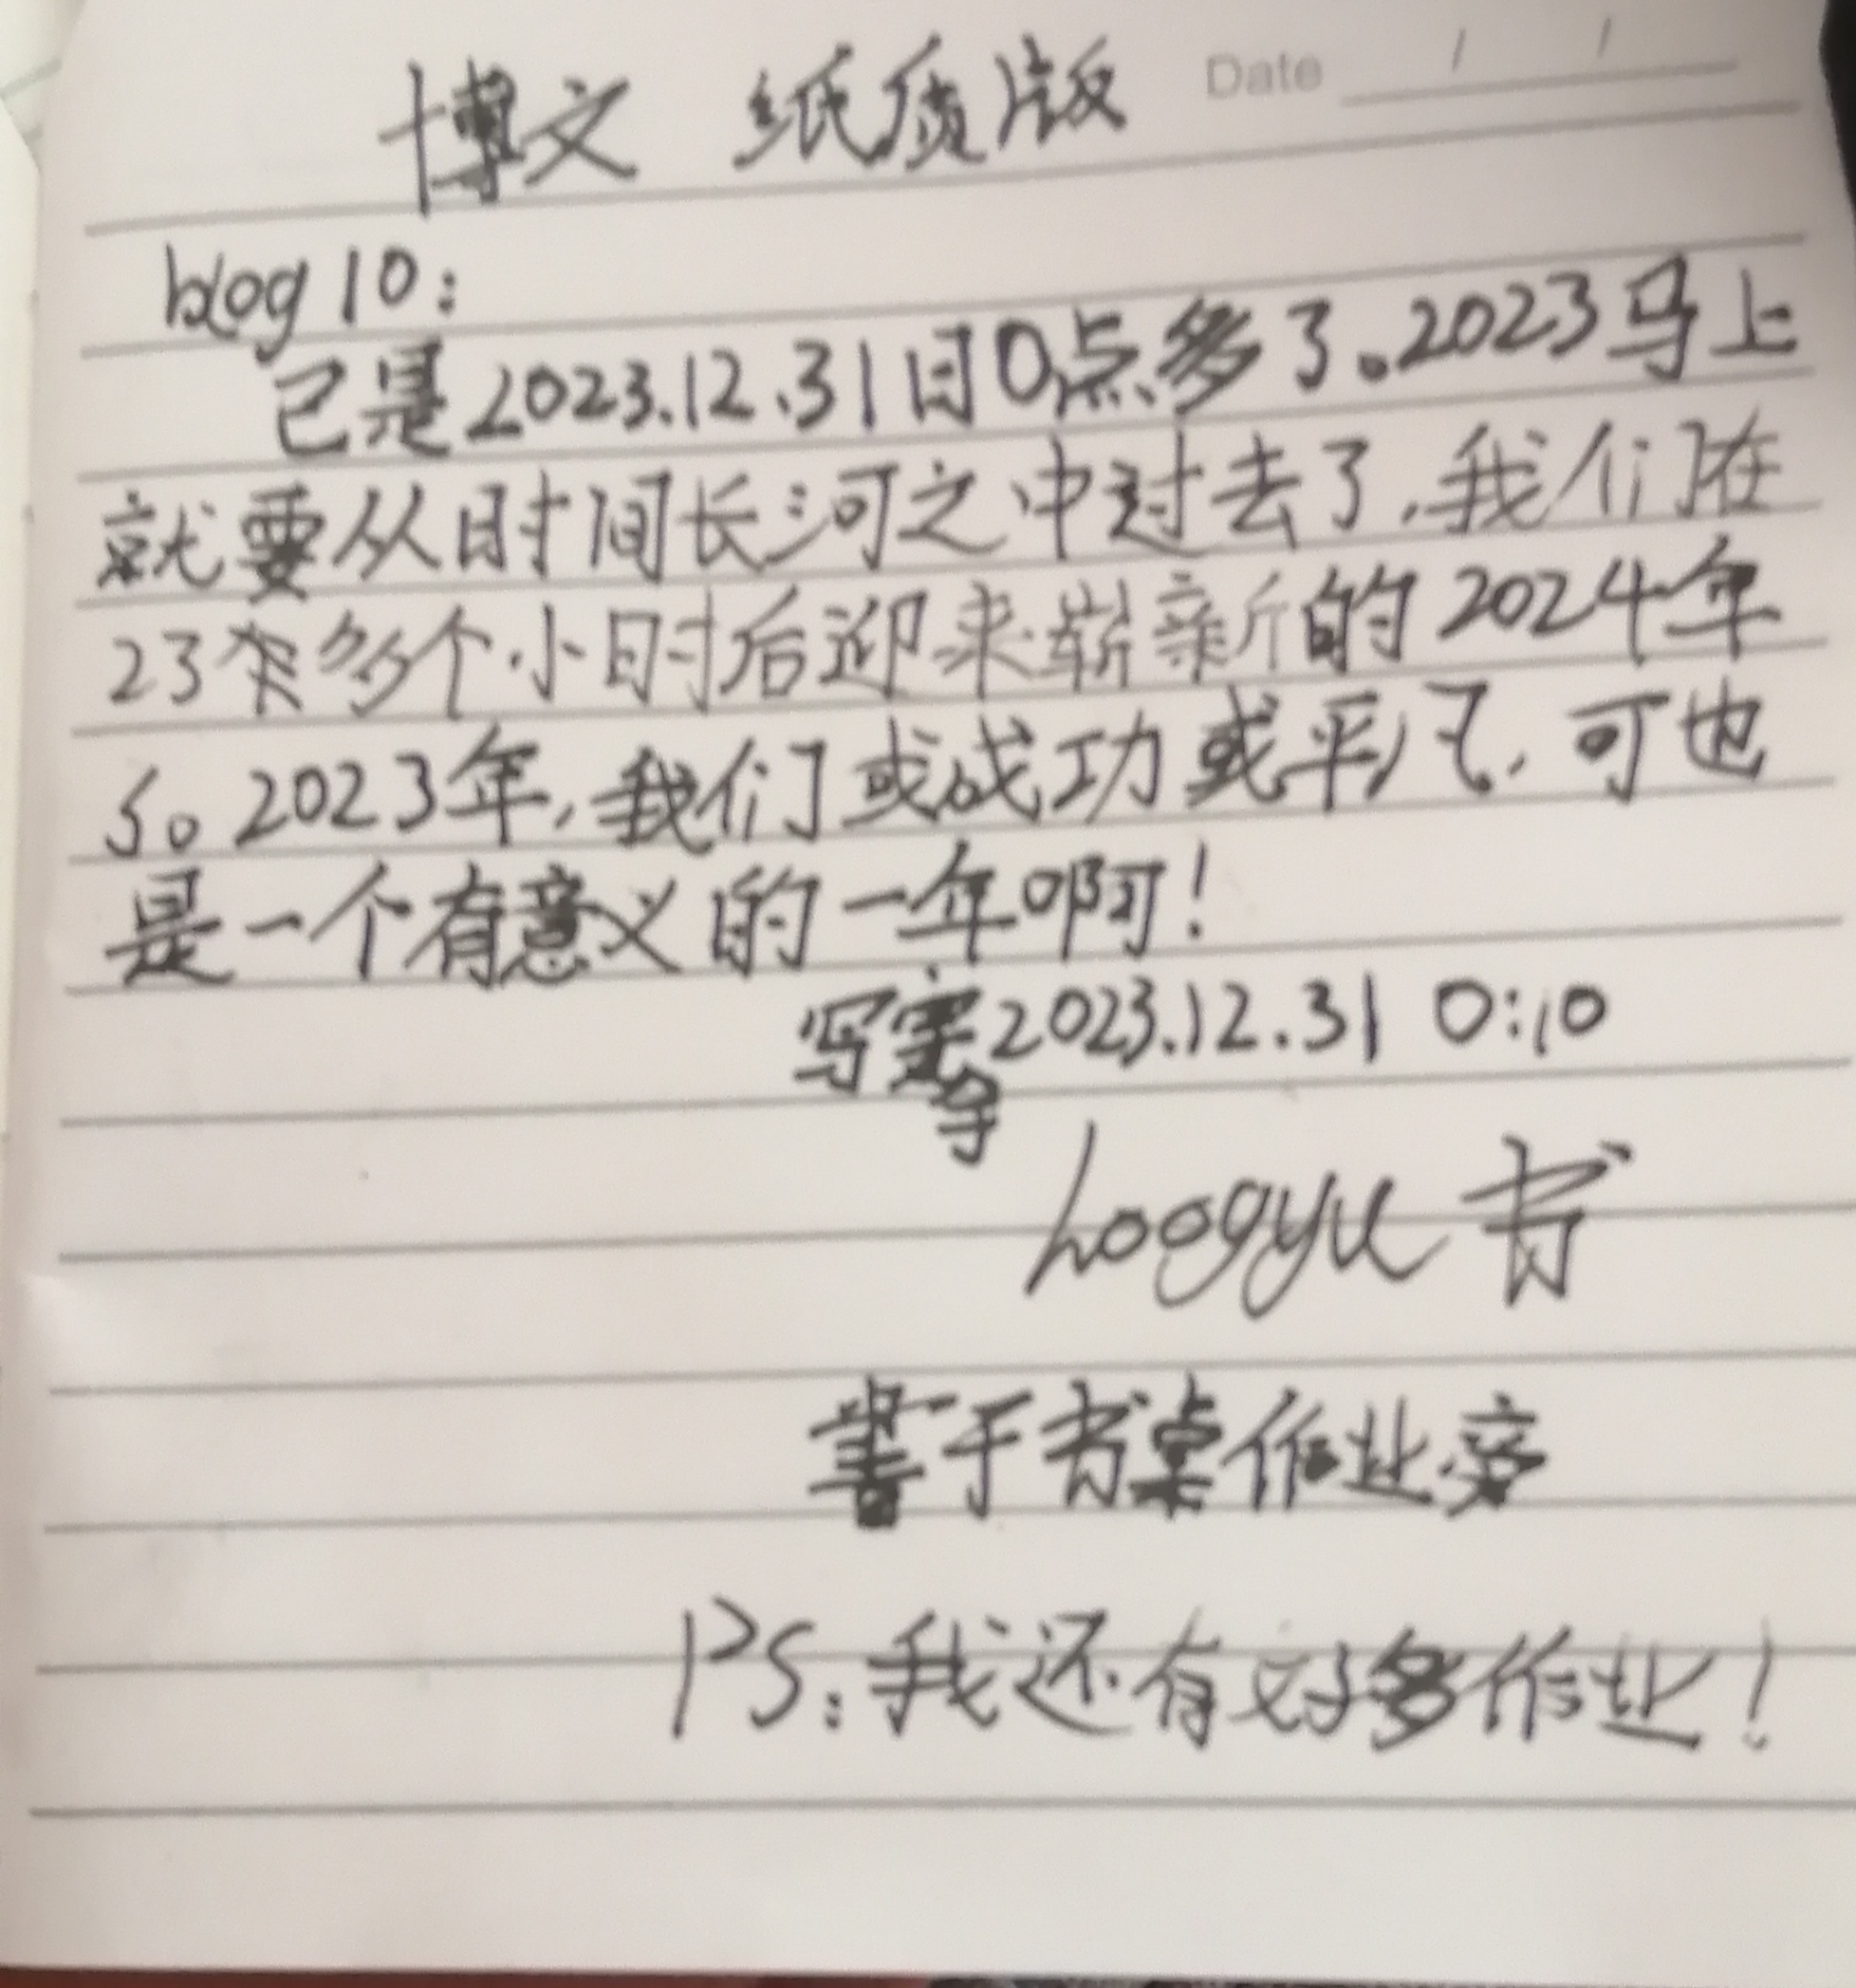 博文 纸质版
Date / /
blog 10:
已是2023.12.31日0点多了。2023马上
就要从时间长河之中过去了,我们在
23多个小时后迎来崭新的2024年
了。2023年,我们或成功或平凡,可也
是一个有意义的一年啊!
写于2023.12.31 0:10
书
于书桌作业旁
PS:我还有好多作业!